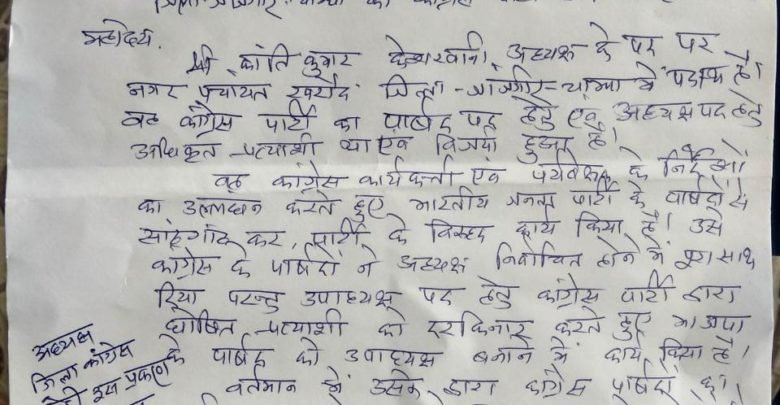 महोदय,
श्री कांति कुमार केशरवानी, अध्यक्ष के पद पर
नगर पंचायत खरौद जिला - जांजगीर-चाम्पा में पदस्थ है।
वह कांग्रेस पार्टी का पार्षद पद हेतु एवं अध्यक्ष पद हेतु
अधिकृत प्रत्याशी था एवं विजयी हुआ है।
वह कांग्रेस कार्यकर्त्ता एवं पर्यवेक्षक के निर्देशों
का उलंघन करते हुए भारतीय जनता पार्टी के पार्षदों से
सांठगांठ कर, पार्टी के विरुद्ध कार्य किया है। उसे
कांग्रेस के पार्षदों ने अध्यक्ष निर्वाचित होने में पूरा साथ
दिया परन्तु उपाध्यक्ष पद हेतु कांग्रेस पार्टी द्वारा
घोषित प्रत्याशी को दरकिनार करते हुए भाजपा
के पार्षद को उपाध्यक्ष बनाने में कार्य किया है।
वर्तमान में उसके द्वारा कांग्रेस पार्षदों का
अध्यक्ष
जिला कांग्रेस
इस प्रकरण